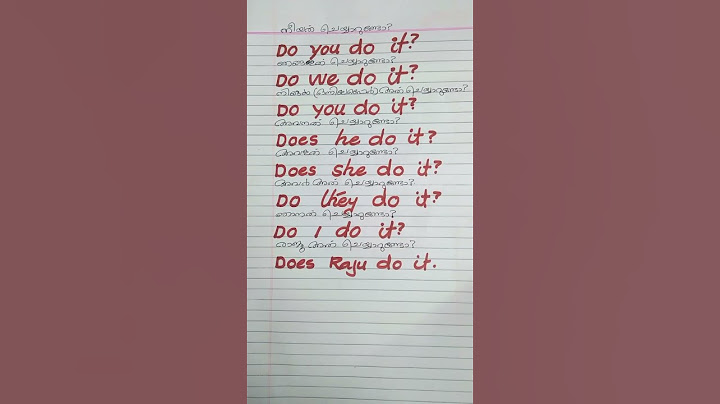 നീയത് ചെയ്യാറുണ്ടോ?
Do you do it?
ഞങ്ങളത് ചെയ്യാറുണ്ടോ?
Do we do it?
നിങ്ങൾ അത് ചെയ്യാറുണ്ടോ?
Do you do it?
അവനത് ചെയ്യാറുണ്ടോ?
Does he do it?
അവളത് ചെയ്യാറുണ്ടോ?
Does she do it?
അവർ അത് ചെയ്യാറുണ്ടോ?
Do they do it?
ഞാനത് ചെയ്യാറുണ്ടോ?
Do I do it?
രാജു അത് ചെയ്യാറുണ്ടോ?
Does Raju do it.